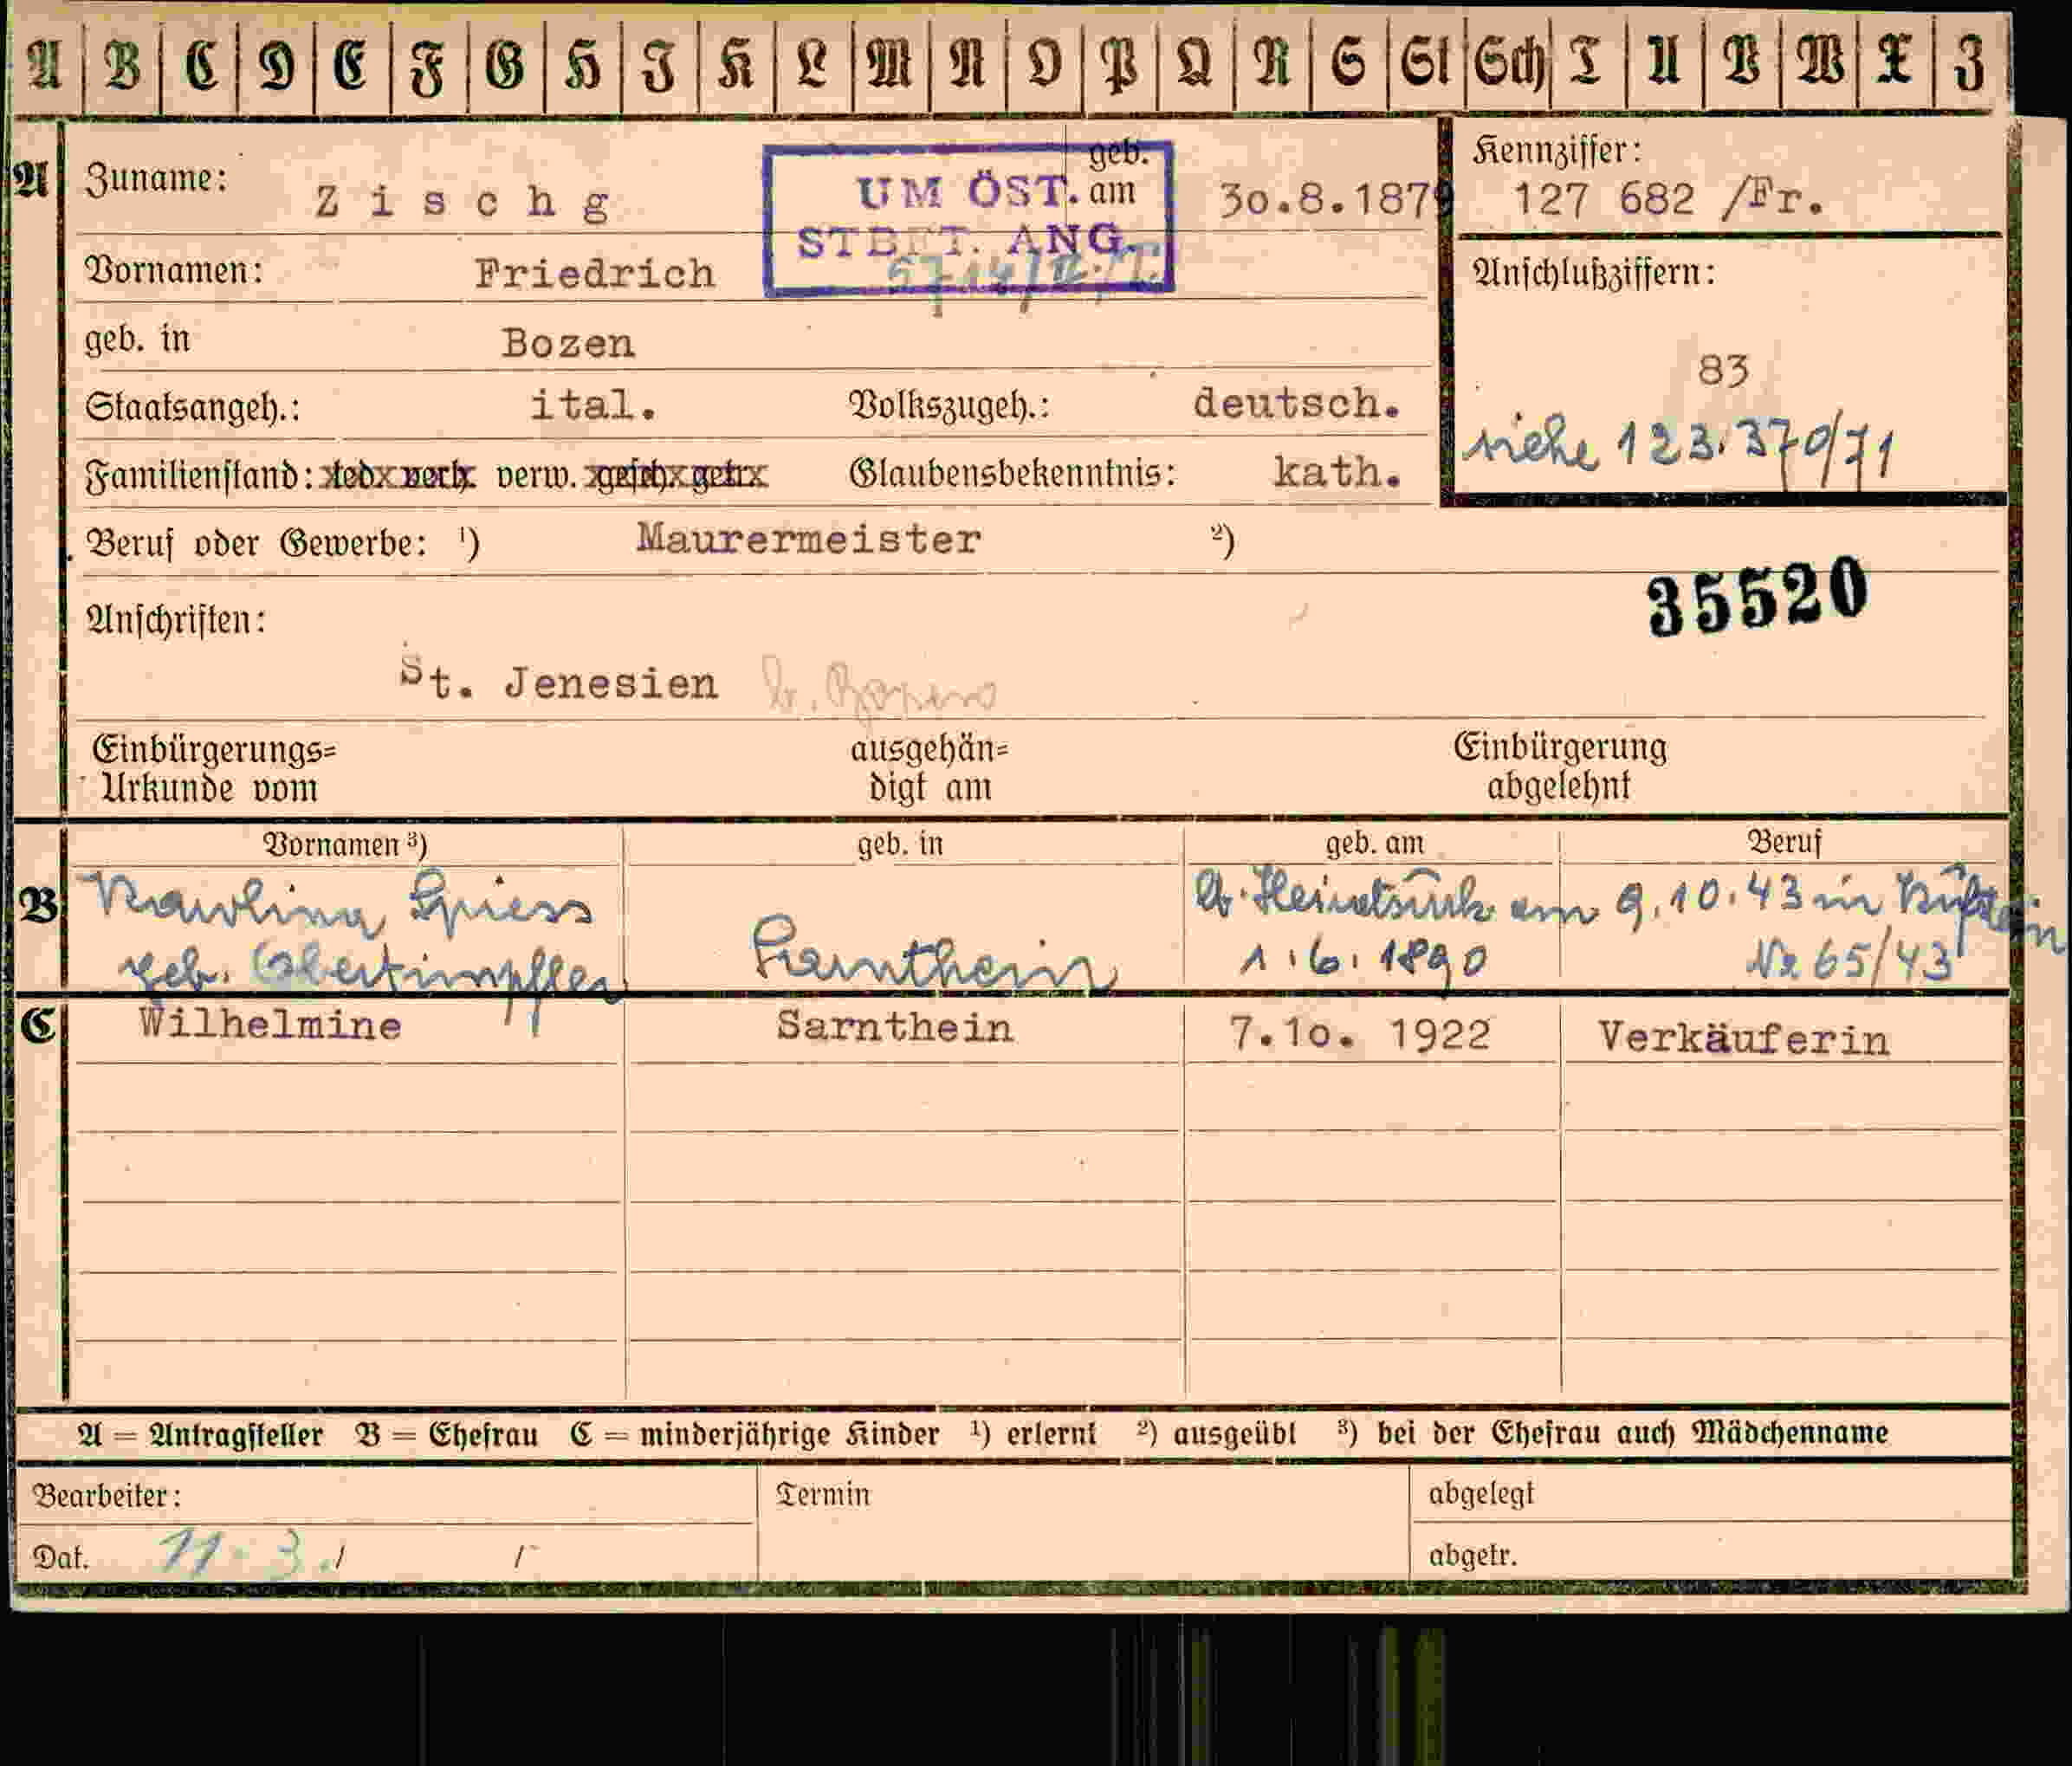 A B C D E F G H I K L M N O P Q R S St Sch T U V W X Z
A Zuname: Zischg geb. am 30.8.1879 Kennziffer: 127 682 /Fr.
UM ÖST.
STBFT. ANG.
Vornamen: Friedrich Anschlußziffern:
geb. in Bozen 83
Staatsangeh.: ital. Volkszugeh.: deutsch. siehe 123.370/71
Familienstand: led. verh. verw. gesch. getr. Glaubensbekenntnis: kath.
Beruf oder Gewerbe: ¹) Maurermeister ²)
35520
Anschriften:
St. Jenesien b. Bozen
Einbürgerungs= ausgehän= Einbürgerung
Urkunde vom digt am abgelehnt
Vornamen ³) geb. in geb. am Beruf
B Karolina Spiess lt. Heiratsurk. am 9.10.43 in Kufstein
geb. Sarnthein 1.6.1890 Nr 65/43
C Wilhelmine Sarnthein 7.10. 1922 Verkäuferin
A = Antragsteller B = Ehefrau C = minderjährige Kinder ¹) erlernt ²) ausgeübt ³) bei der Ehefrau auch Mädchenname
Bearbeiter: Termin abgelegt
Dat. 11.3. abgetr.